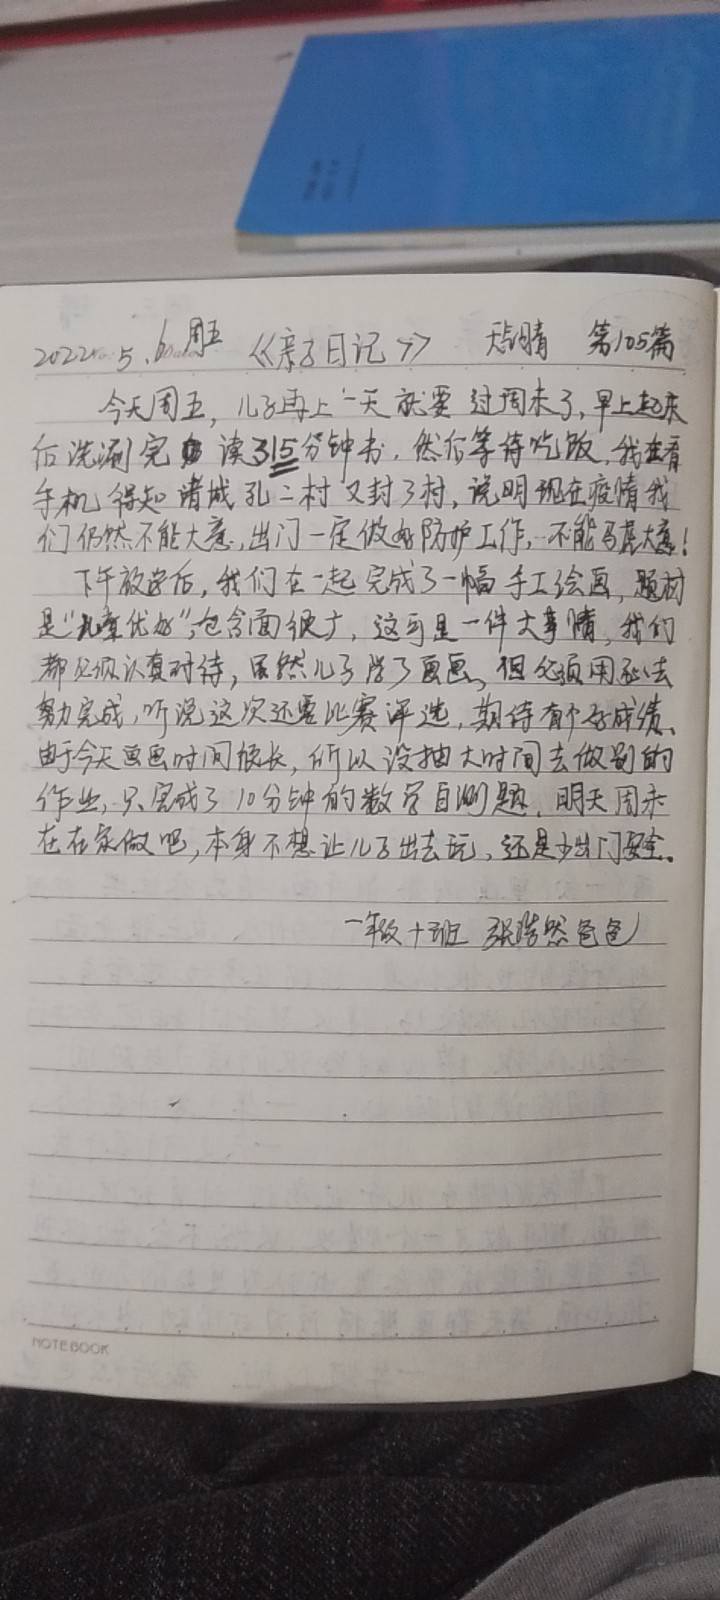 2022. 5. 6 周五 《亲子日记》 天气晴 第105篇
今天周五，儿子再上一天就要过周末了，早上起床
后洗涮完 读了15分钟书，然后等待吃饭，我在看
手机得知诸城孔二村又封了村，说明现在疫情我
们仍然不能大意，出门一定做好防护工作，不能马虎大意！
下午放学后，我们在一起完成了一幅手工绘画，题材
是“ 优 ”，包含面很广，这可是一件大事情，我们
都必须认真对待，虽然儿子学了画画，但必须用心去
努力完成，听说这次还要比赛评选，期待有个好成绩。
由于今天画画时间很长，所以没抽大时间去做别的
作业，只完成了10分钟的数学自测题，明天周末
在在家做吧，本身不想让儿子出去玩，还是少出门安全。
一年级十班 张浩然爸爸
NOTEBOOK